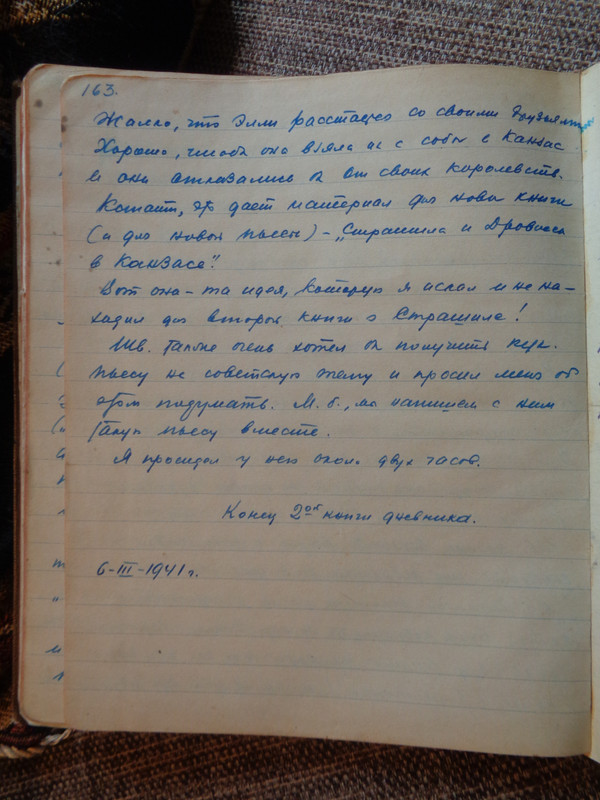 163.
Жалко, что Элли рассталась со своими друзьями.
Хорошо, чтоб она взяла их с собой в Канзас
и они отказались бы от своих королевств.
Кстати, это дает материал для новой книги
(и для новой пьесы) – „Страшила и Дровосек
в Канзасе".
Вот она – та идея, которую я искал и не на-
ходил для второй книги о Страшиле!
Шв. также очень хотел бы получить кук.
пьесу на советскую тему и просил меня об
этом подумать. М. б., мы напишем с ним
такую пьесу вместе.
Я просидел у него около двух часов.
Конец 2ой книги дневника.
6-III-1941 г.